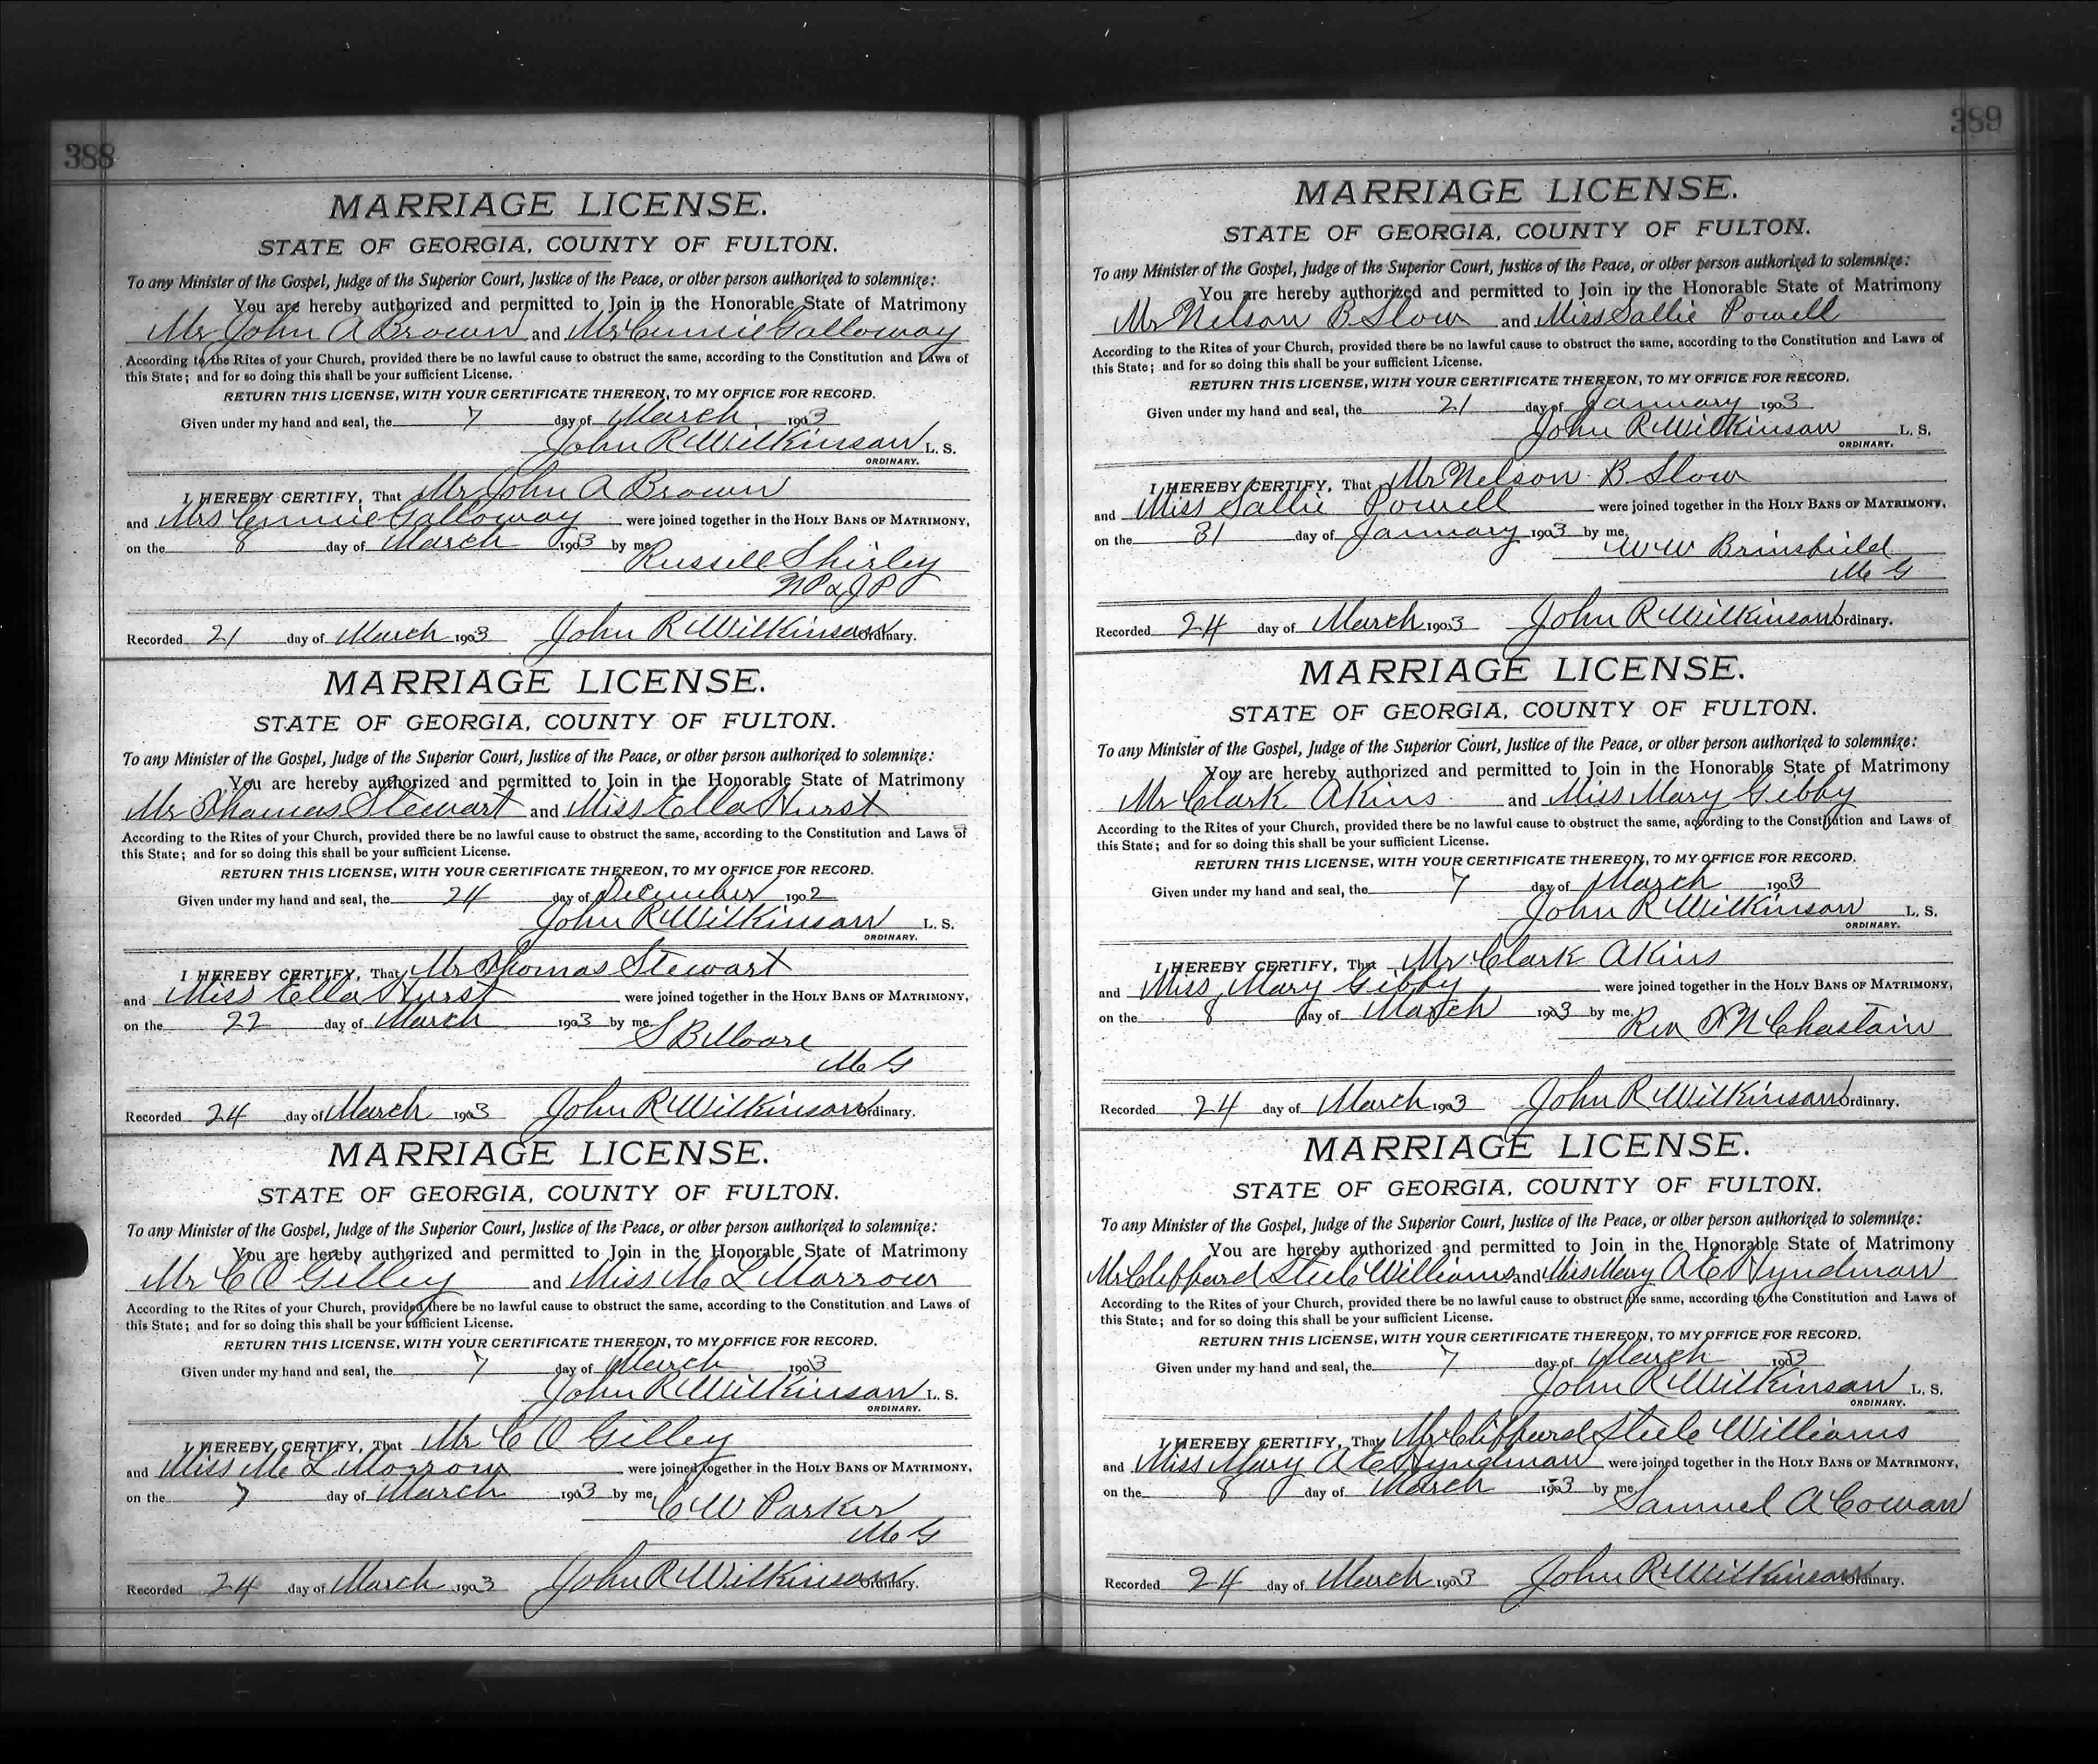 388
MARRIAGE LICENSE.
STATE OF GEORGIA, COUNTY OF FULTON.
To any Minister of the Gospel, Judge of the Superior Court, Justice of the Peace, or other person authorized to solemnize:
You are hereby authorized and permitted to Join in the Honorable State of Matrimony
Mr John A Brown and Mrs Galloway
According to the Rites of your Church, provided there be no lawful cause to obstruct the same, according to the Constitution and Laws of
this State; and for so doing this shall be your sufficient License.
RETURN THIS LICENSE, WITH YOUR CERTIFICATE THEREON, TO MY OFFICE FOR RECORD.
Given under my hand and seal, the 7 day of March 1903
John R Wilkinson L. S.
ORDINARY.
I HEREBY CERTIFY, That Mr John A Brown
and Mrs Galloway were joined together in the HOLY BANS OF MATRIMONY,
on the 8 day of March 1903 by me,
Russell Shirley
NP & JP
Recorded 21 day of March 1903 John R Wilkinson Ordinary.
MARRIAGE LICENSE.
STATE OF GEORGIA, COUNTY OF FULTON.
To any Minister of the Gospel, Judge of the Superior Court, Justice of the Peace, or other person authorized to solemnize:
You are hereby authorized and permitted to Join in the Honorable State of Matrimony
Mr Thomas Stewart and Miss Ella Hurst
According to the Rites of your Church, provided there be no lawful cause to obstruct the same, according to the Constitution and Laws of
this State; and for so doing this shall be your sufficient License.
RETURN THIS LICENSE, WITH YOUR CERTIFICATE THEREON, TO MY OFFICE FOR RECORD.
Given under my hand and seal, the 24 day of December 1902
John R Wilkinson L. S.
ORDINARY.
I HEREBY CERTIFY, That Mr Thomas Stewart
and Miss Ella Hurst were joined together in the HOLY BANS OF MATRIMONY,
on the 22 day of March 1903 by me,
S B Moore
M G
Recorded 24 day of March 1903 John R Wilkinson Ordinary.
MARRIAGE LICENSE.
STATE OF GEORGIA, COUNTY OF FULTON.
To any Minister of the Gospel, Judge of the Superior Court, Justice of the Peace, or other person authorized to solemnize:
You are hereby authorized and permitted to Join in the Honorable State of Matrimony
Mr C O Gilley and Miss M L Morrow
According to the Rites of your Church, provided there be no lawful cause to obstruct the same, according to the Constitution and Laws of
this State; and for so doing this shall be your sufficient License.
RETURN THIS LICENSE, WITH YOUR CERTIFICATE THEREON, TO MY OFFICE FOR RECORD.
Given under my hand and seal, the 7 day of March 1903
John R Wilkinson L. S.
ORDINARY.
I HEREBY CERTIFY, That Mr C O Gilley
and Miss M L Morrow were joined together in the HOLY BANS OF MATRIMONY,
on the 7 day of March 1903 by me,
C W Parker
M G
Recorded 24 day of March 1903 John R Wilkinson Ordinary.
389
MARRIAGE LICENSE.
STATE OF GEORGIA, COUNTY OF FULTON.
To any Minister of the Gospel, Judge of the Superior Court, Justice of the Peace, or other person authorized to solemnize:
You are hereby authorized and permitted to Join in the Honorable State of Matrimony
Mr Nelson B Slow and Miss Sallie Powell
According to the Rites of your Church, provided there be no lawful cause to obstruct the same, according to the Constitution and Laws of
this State; and for so doing this shall be your sufficient License.
RETURN THIS LICENSE, WITH YOUR CERTIFICATE THEREON, TO MY OFFICE FOR RECORD.
Given under my hand and seal, the 21 day of January 1903
John R Wilkinson L. S.
ORDINARY.
I HEREBY CERTIFY, That Mr Nelson B Slow
and Miss Sallie Powell were joined together in the HOLY BANS OF MATRIMONY,
on the 31 day of January 1903 by me,
W W Brinsfield
M G
Recorded 24 day of March 1903 John R Wilkinson Ordinary.
MARRIAGE LICENSE.
STATE OF GEORGIA, COUNTY OF FULTON.
To any Minister of the Gospel, Judge of the Superior Court, Justice of the Peace, or other person authorized to solemnize:
You are hereby authorized and permitted to Join in the Honorable State of Matrimony
Mr Clark Akins and Miss Mary Gibby
According to the Rites of your Church, provided there be no lawful cause to obstruct the same, according to the Constitution and Laws of
this State; and for so doing this shall be your sufficient License.
RETURN THIS LICENSE, WITH YOUR CERTIFICATE THEREON, TO MY OFFICE FOR RECORD.
Given under my hand and seal, the 7 day of March 1903
John R Wilkinson L. S.
ORDINARY.
I HEREBY CERTIFY, That Mr Clark Akins
and Miss Mary Gibby were joined together in the HOLY BANS OF MATRIMONY,
on the 8 day of March 1903 by me,
Rev T N Chastain
Recorded 24 day of March 1903 John R Wilkinson Ordinary.
MARRIAGE LICENSE.
STATE OF GEORGIA, COUNTY OF FULTON.
To any Minister of the Gospel, Judge of the Superior Court, Justice of the Peace, or other person authorized to solemnize:
You are hereby authorized and permitted to Join in the Honorable State of Matrimony
Mr Clifford Steele Williams and Miss Mary A E Hyndman
According to the Rites of your Church, provided there be no lawful cause to obstruct the same, according to the Constitution and Laws of
this State; and for so doing this shall be your sufficient License.
RETURN THIS LICENSE, WITH YOUR CERTIFICATE THEREON, TO MY OFFICE FOR RECORD.
Given under my hand and seal, the 7 day of March 1903
John R Wilkinson L. S.
ORDINARY.
I HEREBY CERTIFY, That Mr Clifford Steele Williams
and Miss Mary A E Hyndman were joined together in the HOLY BANS OF MATRIMONY,
on the 8 day of March 1903 by me,
Samuel A Cowan
Recorded 24 day of March 1903 John R Wilkinson Ordinary.